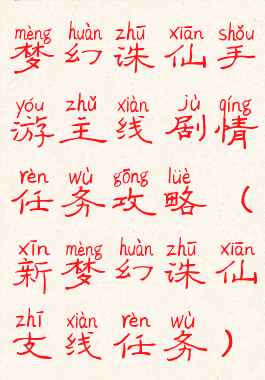 mèng huàn zhū xiān shǒu
梦幻诛仙手
yóu zhǔ xiàn jù qíng
游主线剧情
rèn wù gōng lüè
任务攻略（
xīn mèng huàn zhū xiān
新梦幻诛仙
zhī xiàn rèn wù
支线任务）